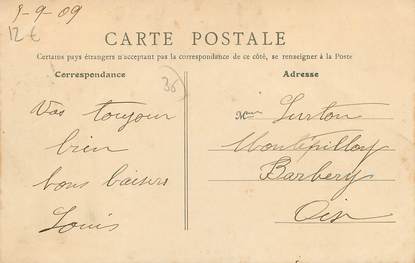 9-9-09
12€
CARTE POSTALE
Certains pays étrangers n'acceptant pas la correspondance de ce côté, se renseigner à la Poste
Correspondance
36
Adresse
Vas toujour
bien
bons baisers
Louis
Mme Lurton
Montépilloy
Barbery
Oise